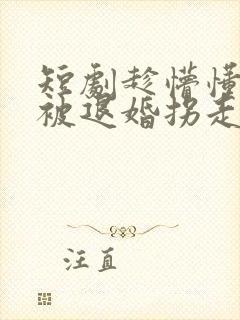 短劇趁懵懂
被退婚拐走
汪直